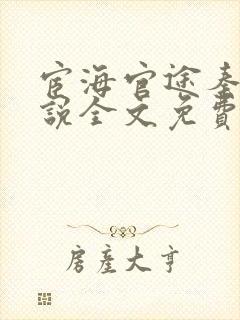 宦海官途秦
說全文免費
房產大亨